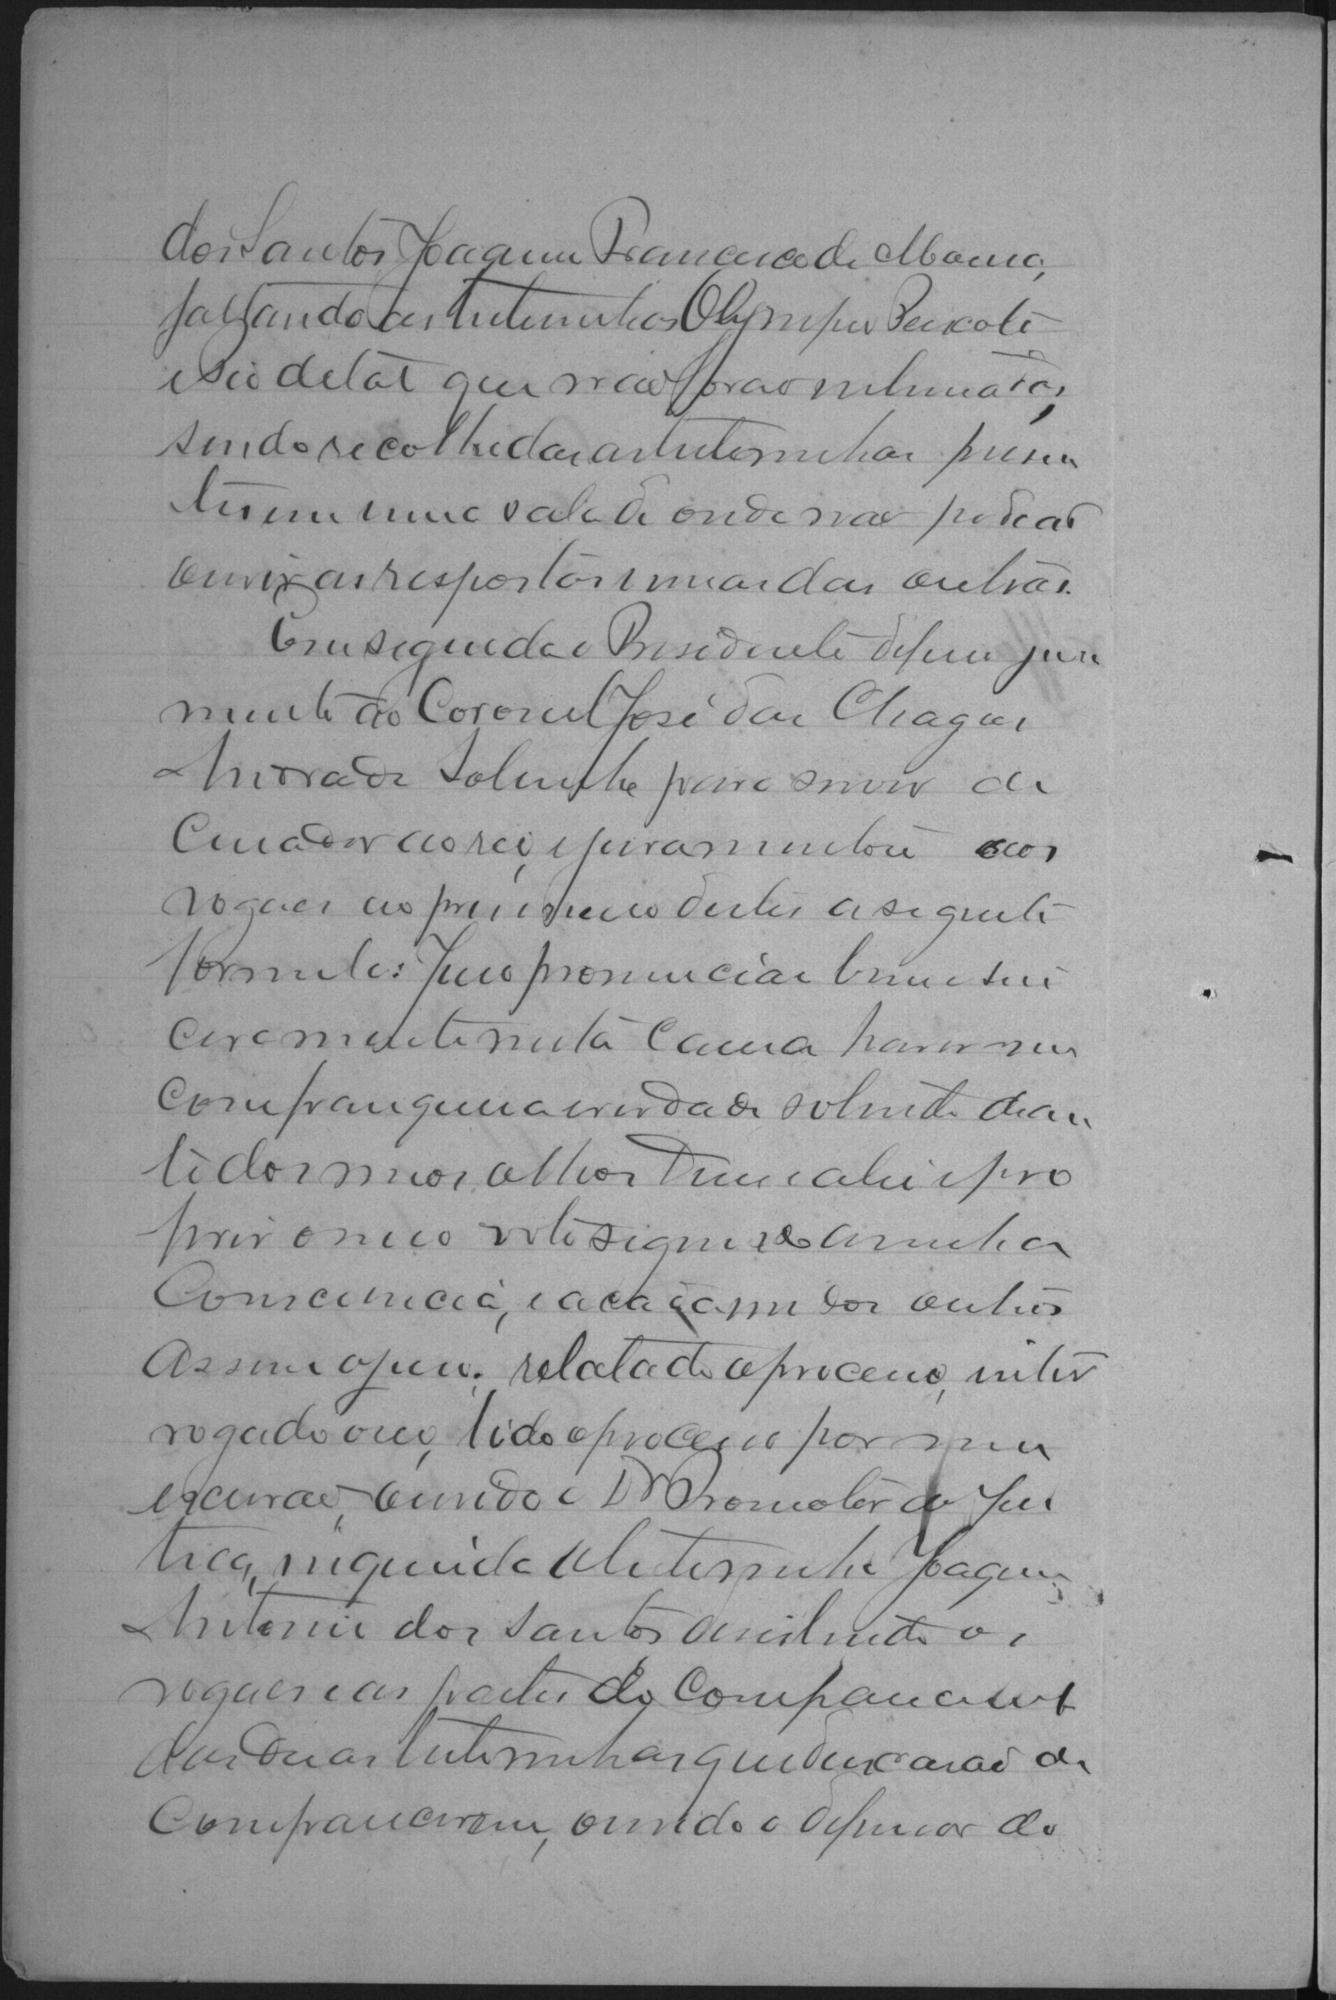 dos Santos Joaquim Francisco de Moura,
faltando as testemunhas Olympio Peixoto
e que não forão intimados,
sendo recolhidas as testemunhas presen
tes em uma sala de onde não podião
ouvir as respostas umas das outras.
Em seguida o Presidente deferio jura
mento ao Coronel José das Chagas
Andrade Sobrinho para servir de
Curador ao reo, e juramentou aos
vogaes ao primeiro destes a seguinte
formula: Juro pronunciar bem e sin
ceramente nesta causa haver-me
com franqueza e verdade só tendo dian
te dos meus olhos Deus a lei e pro
ferir o meu voto segundo a minha
Consciencia, e a cada um dos outros
Assim o juro; relatado o processo, inter
rogado o reo, lido o processo por mim
escrivão, ouvido o Dr Promotor de Jus
tiça, inquirida a testemunha Joaquim
Antonio dos Santos desistindo os
vogaes e as partes do comparecimt
das duas testemunhas que deixarão de
Comparecerem, ouvido o defensor do